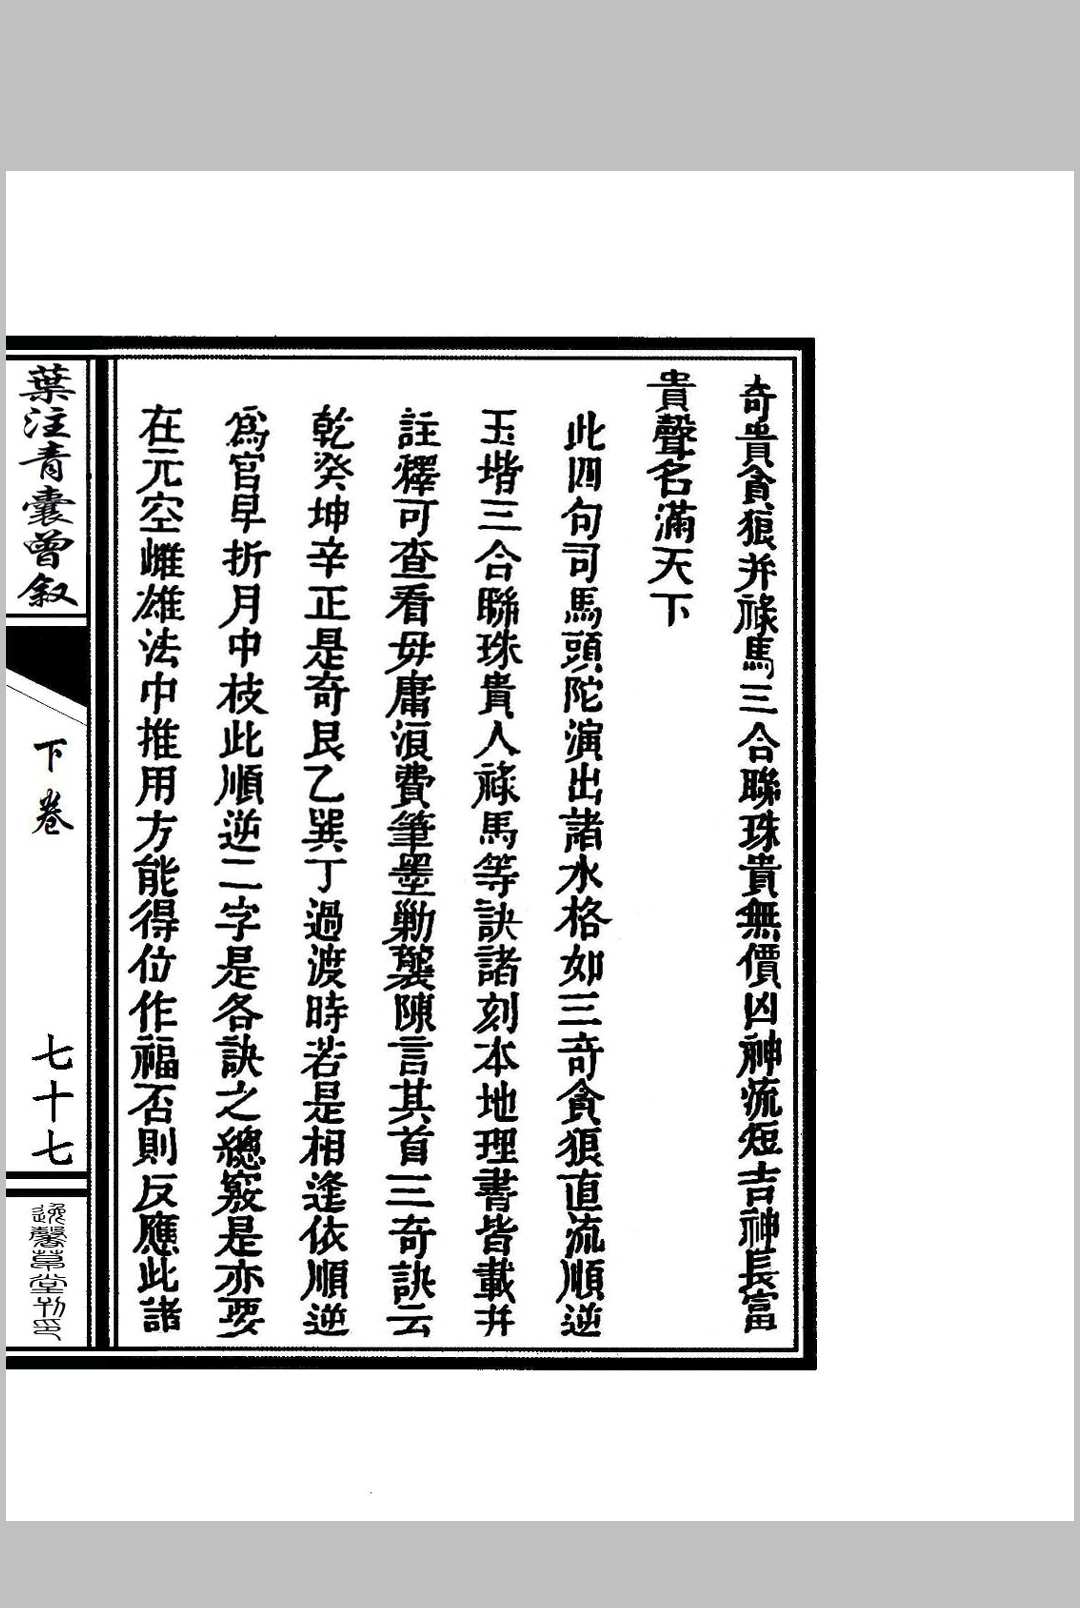 奇貴貪狼并祿馬三合聯珠貴無價凶神流短吉神長富
貴聲名滿天下
此四句司馬頭陀演出諸水格如三奇貪狼直流順逆
玉堦三合聯珠貴人祿馬等訣諸刻本地理書皆載并
註釋可查看毋庸湏費筆墨勦襲陳言其首三奇訣云
乾癸坤辛正是奇艮乙巽丁過渡時若是相逢依順逆
爲官早折月中枝此順逆二字是各訣之總竅是亦要
在元空雌雄法中推用方能得位作福否則反應此諸
葉注青囊曾叙
下卷
七十七
逸馨草堂刊印